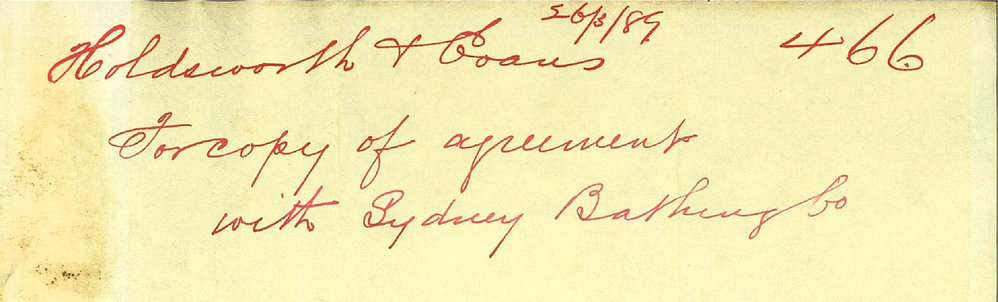 Holdsworth & Evans 26/3/89 466
For copy of agreement
with Sydney Bathing Co